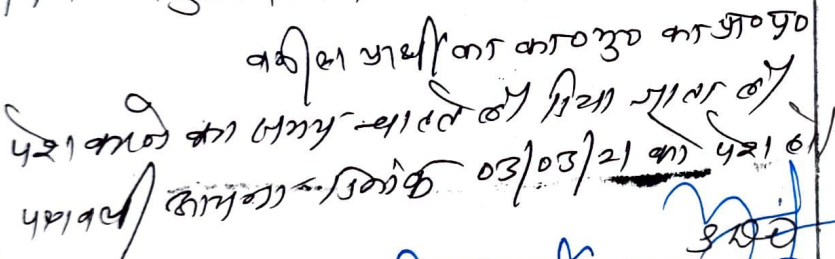 वकील प्रार्थी का का०मु० का प्रा०प०
पेश करने का समय चाहते है दिया जाता है
पत्रावली वास्ते दिनांक 03/03/21 को पेश हो